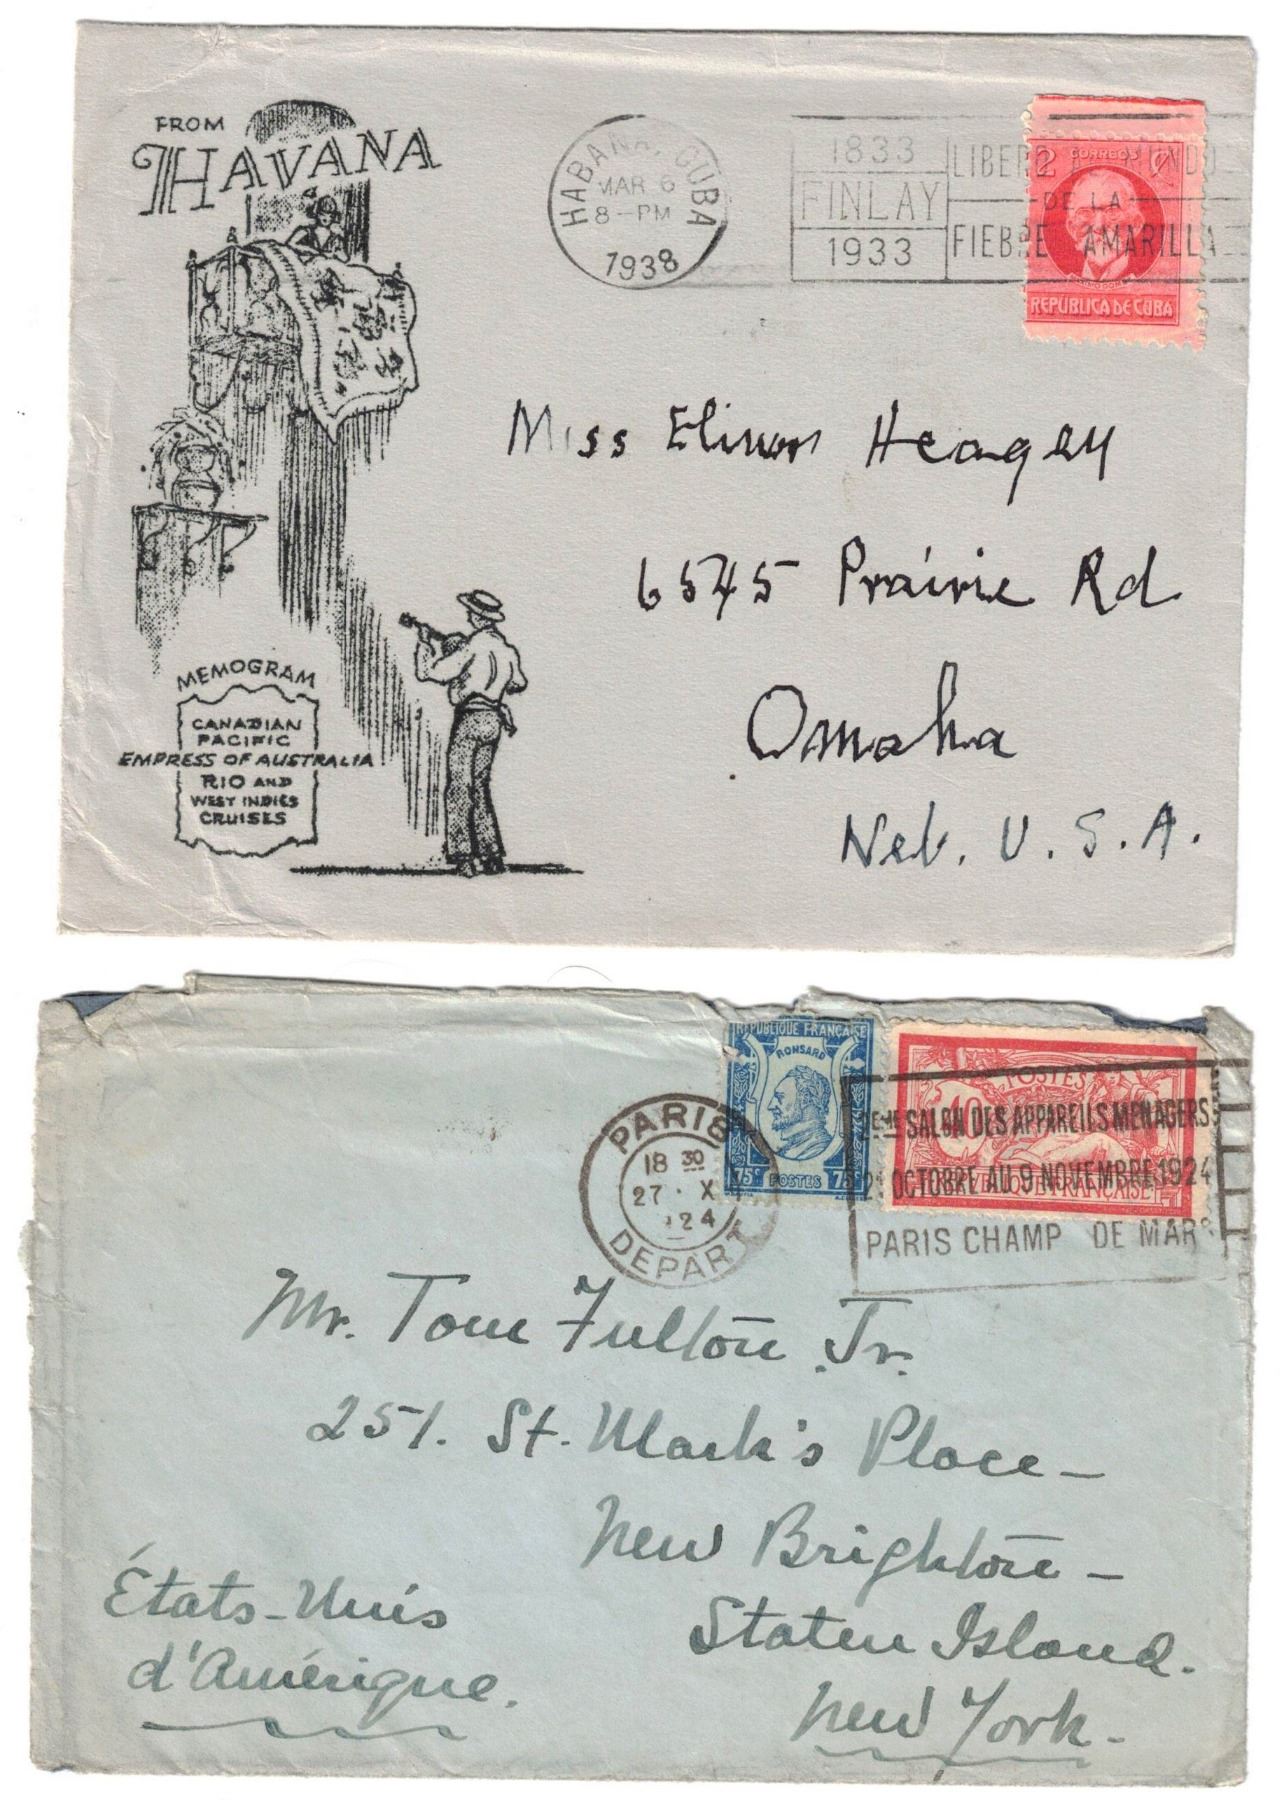 FROM
HAVANA
HABANA, CUBA
MAR 6
8-PM
1938
1833
FINLAY
1933
LIBERO MUNDO
DE LA
FIEBRE AMARILLA
CORREOS
REPÚBLICA DE CUBA
Miss Elinor Heagey
6545 Prairie Rd
Omaha
Neb. U.S.A.
MEMOGRAM
CANADIAN
PACIFIC
EMPRESS OF AUSTRALIA
RIO AND
WEST INDIES
CRUISES
REPUBLIQUE FRANÇAISE
RONSARD
75c POSTES 75c
POSTES
40
PARIS 8
18 30
27 · X
24
DEPART
2EME SALON DES APPAREILS MENAGERS
OCTOBRE AU 9 NOVEMBRE 1924
PARIS CHAMP DE MARS
Mr. Tom Fulton Jr.
251. St. Mark's Place –
New Brighton –
Staten Island.
New York.
États-Unis
d'Amérique.